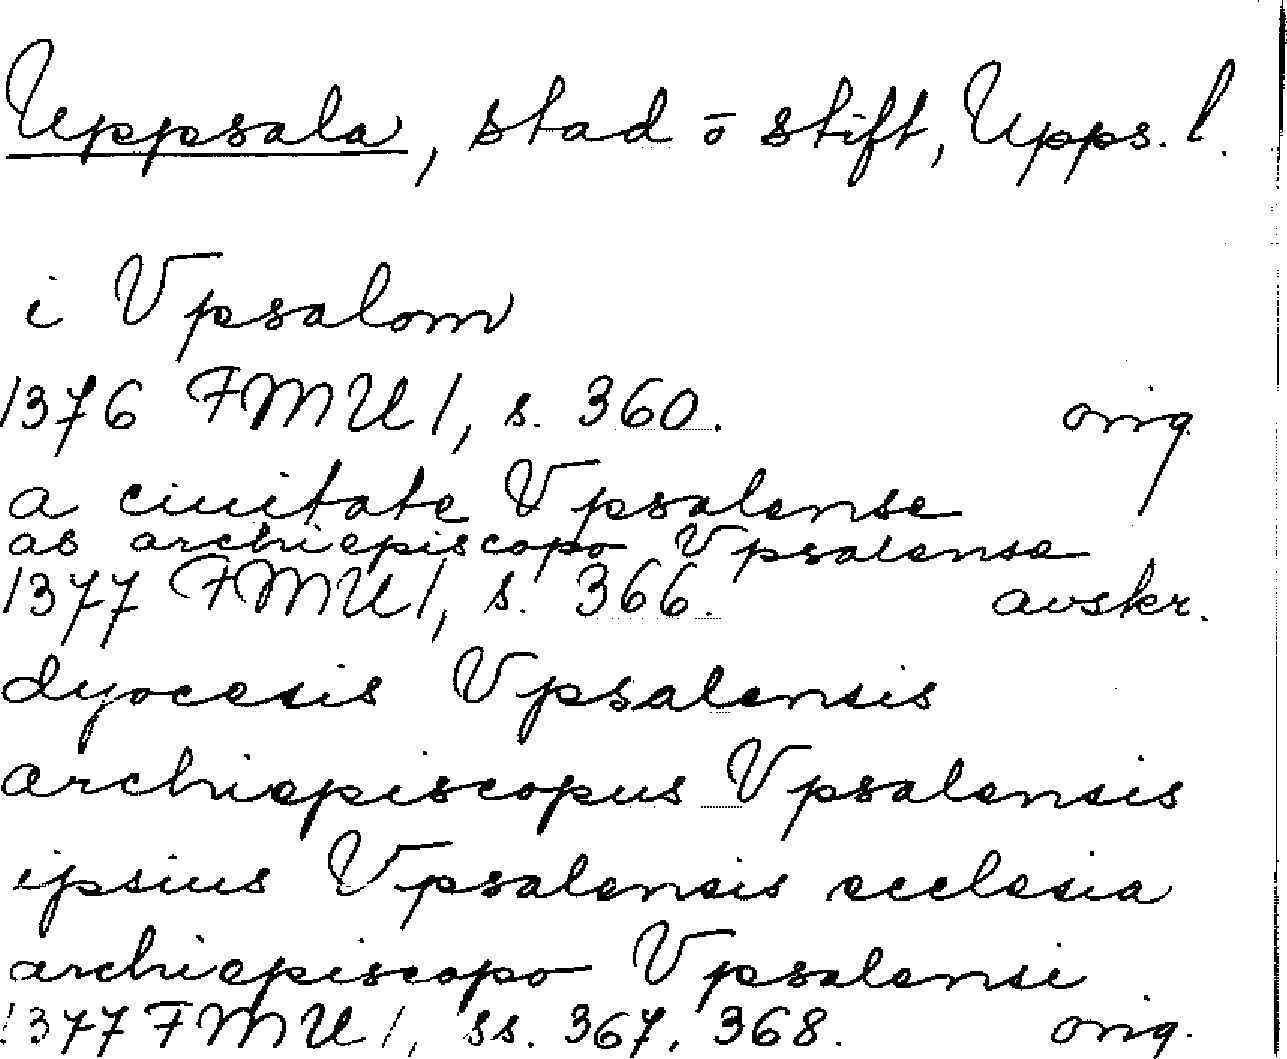 Uppsala, stad o stift, Upps. l.
i Vpsalom
1376 FMU I, s. 360. orig.
a ciuitate Vpsalense
ab archiepiscopo Vpsalense
1377 FMU I, s. 366. avskr.
dyocesis Vpsalensis
archiepiscopus Vpsalensis
ipsius Vpsalensis ecclesia
archiepiscopo Vpsalensi
1377 FMU I, ss. 367, 368. orig.